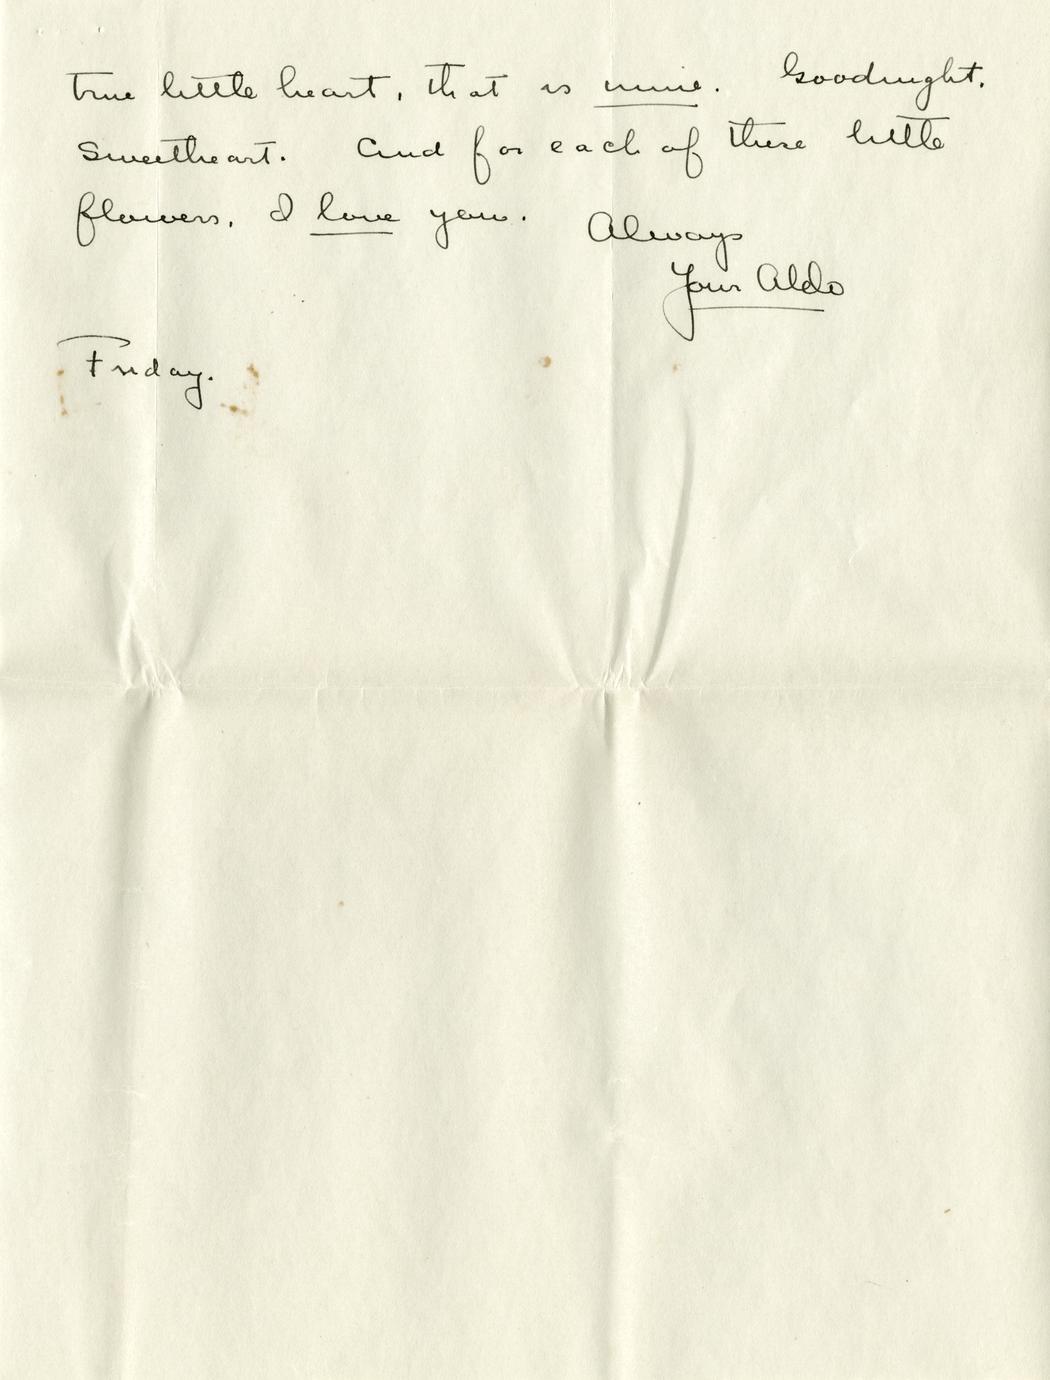 true little heart, that is mine. Goodnight,
Sweetheart. And for each of these little
flowers, I love you.
Always
Your Aldo
Friday.